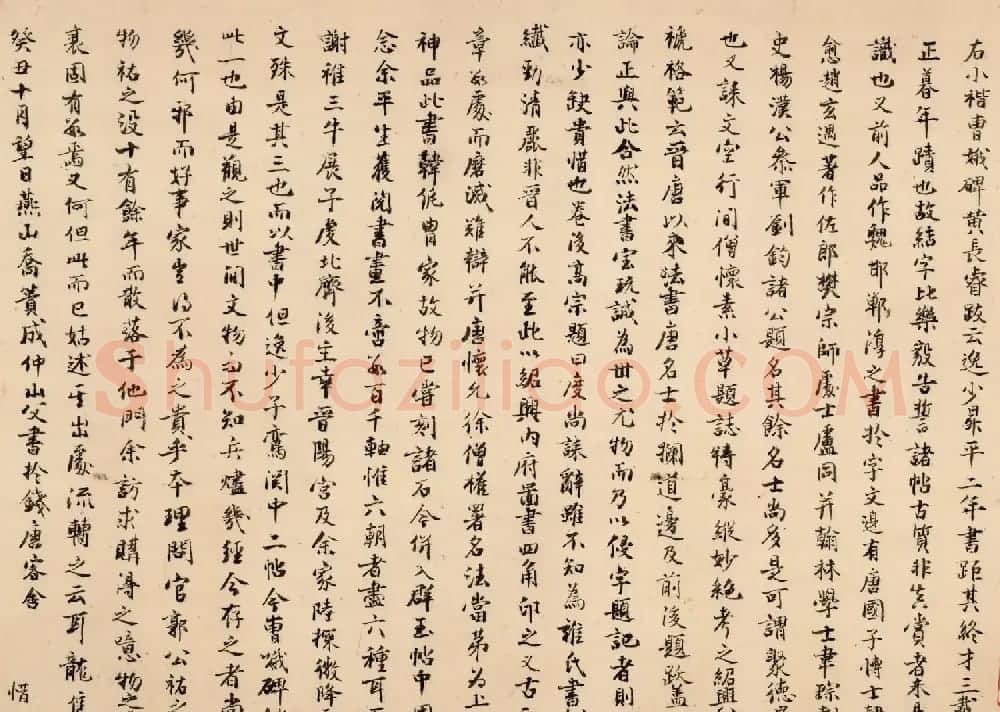 右小楷曹娥碑黄長睿跋云逸少昇平二年書距其終才三載
正暮年蹟也故結字比樂毅告誓諸帖古質非真賞者未易
識也又前人品作魏邯鄲淳之書於字文邊有唐國子博士韓
愈趙玄遇著作佐郎樊宗師處士盧同并翰林學士韋琮
史楊漢公參軍劉鈞諸公題名其餘名士尚多是可謂聚德
也又誄文空行間僧懷素小草題誌特豪縱妙絶考之紹興
號格範云晉唐以來法書唐名士於欄道邊及前後題跋盖
論正與此合然法書宝玩誠為世之尤物而乃以侵字題記者則
亦少缺貴惜也卷後高宗題曰度尚誄辭雖不知為誰氏書
纖勁清麗非晉人不能至此以紹興内府啚書四角印之又古
章數處而磨滅難辯并唐懷充徐僧權署名法當第為上
神品此書韓侂胄家故物已嘗刻諸石今併入群玉帖中
念余平生獲閲書畫不啻數百千軸惟六朝者盡六種耳
謝稚三牛展子虔北齊後主幸晉陽宮及余家陸探微降
文殊是其三也而以書中但逸少子鸞閣中二帖今曹娥碑
此一也由是觀之則世間文物
不知兵燼幾經今存之者尚
幾何邪而好事家豈得不為之貴乎本理問官郭公祐之
物祐之没十有餘年而散落于他門余訪求購得之噫物之
裹固有數焉又何但此而已姑述其出處流轉之云耳 龍集
癸丑十月望日燕山喬簣成仲山父書於錢唐客舍
惜
Shufaziliao.COM